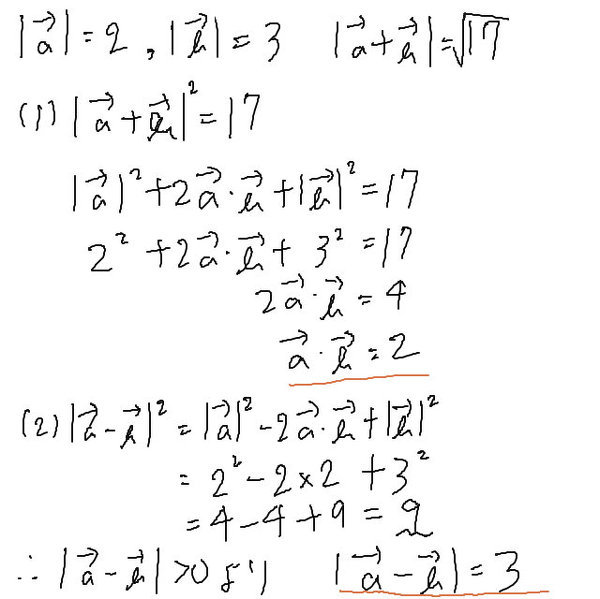 |a⃗|=2, |b⃗|=3 |a⃗+b⃗|=√17
(1) |a⃗+b⃗|²=17
|a⃗|²+2a⃗·b⃗+|b⃗|²=17
2²+2a⃗·b⃗+3²=17
2a⃗·b⃗=4
a⃗·b⃗=2
(2) |a⃗-b⃗|²=|a⃗|²-2a⃗·b⃗+|b⃗|²
=2²-2×2+3²
=4-4+9=9
∴ |a⃗-b⃗|>0より |a⃗-b⃗|=3